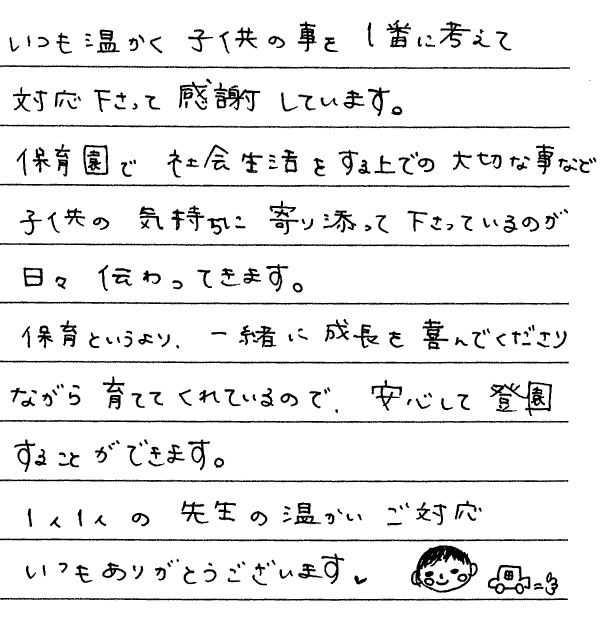 いつも温かく 子供の事を 1番に考えて
対応下さって 感謝しています。
保育園で 社会生活をする上での大切な事など
子供の 気持ちに 寄り添って 下さっているのが
日々 伝わってきます。
保育というより、一緒に 成長を 喜んでくださり
ながら 育ててくれているので、安心して 登園
することができます。
1人1人の 先生の温かい ご対応
いつもありがとうございます